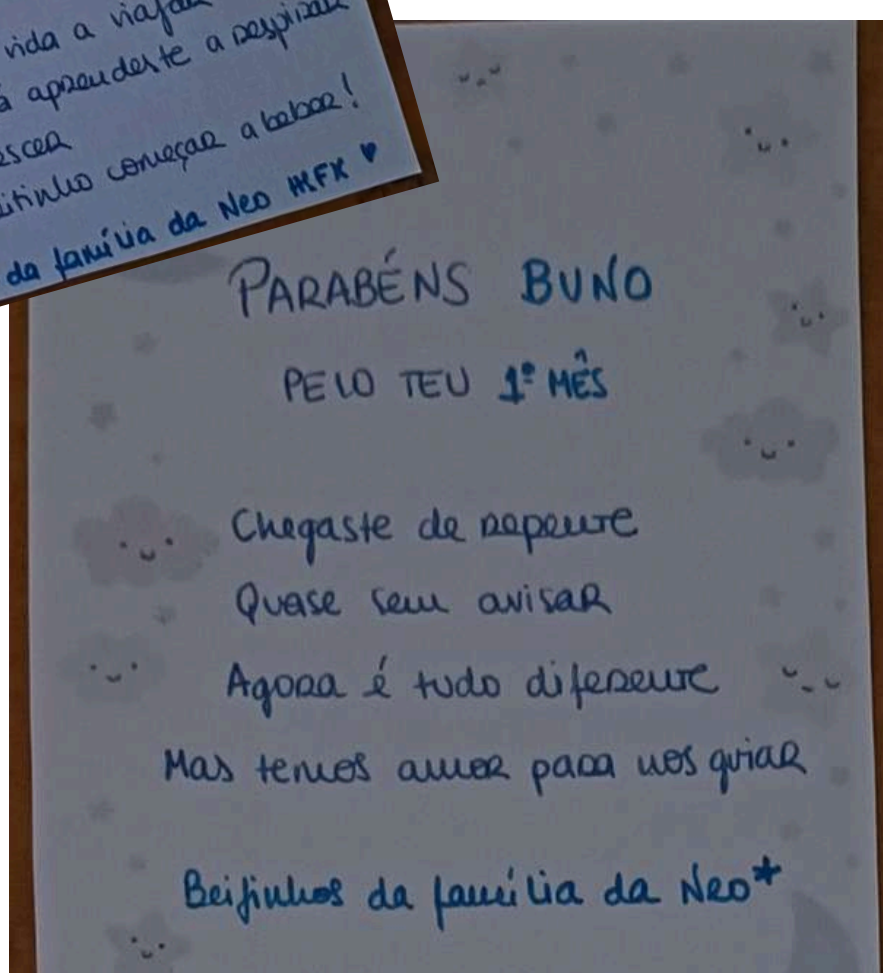 vida a viajar
aprendeste a respirar
começar a babar!
da família da Neo HFX ♥
PARABÉNS BUNO
PELO TEU 1º MÊS
Chegaste de repente
Quase sem avisar
Agora é tudo diferente
Mas temos amor para nos guiar
Beijinhos da família da Neo*